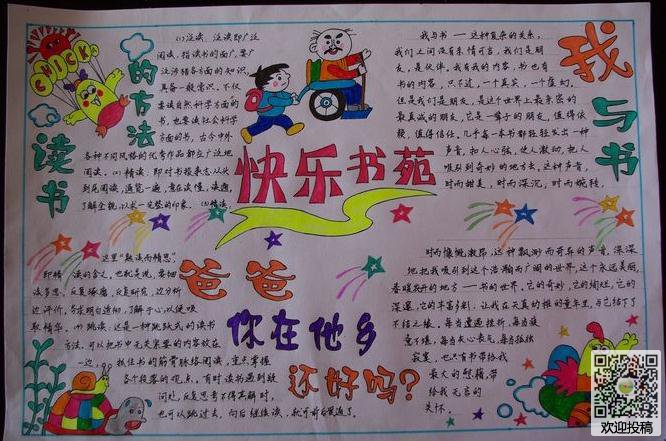 CHICKS
读书的方法
(1)泛读，泛读即广泛
阅读，指读书的面广，要广
泛涉猎各方面的知识，
具备一般常识。不仅
要读自然科学方面的
书，也要读社会科学
方面的书，古今中外
各种不同风格的优秀作品都应广泛地
阅读。(2)精读：即对书报杂志从头
到尾阅读，通览一遍，意在读懂，读透，
了解全貌，以求一完整的印象。(3)精读
这里"熟读而精思"
即精读的含义，也就是说，要细
读多思，反复琢磨，反复研究，边分析
边评价，务求明白透彻，了解于心以便吸
取精华。(4)跳读：这是一种跳跃式的读书
方法，可以把书中无关紧要的内容放在
一边，抓住书的筋骨脉络阅读，重点掌握
各个段落的观点，有时读书遇到疑
问处，反复思考不得其解时，
也可以跳过去，向后继续读，就可前后贯通了。
快乐书苑
爸爸
你在他乡
还好吗？
我与书
我与书——这种复杂的关系，
我们之间没有亲情可言，我们是朋
友，是伙伴。我有我的内容，书也有
书的内容，只不过，一个真实，一个虚幻。
但是我们是朋友，是这个世界上最亲密的
最真诚的朋友，它是一辈子的朋友，值得依
赖，值得信任，几乎每一本书都轻轻发出一种
声音，扣人心弦，使人激动，把人
吸引到奇妙的地方去，这种声音，
时而甜美，时而深沉，时而婉转，
时而慷慨激昂，这种飘渺而奇异的声音，深深
地把我吸引到这个浩瀚而广阔的世界，这个永远美丽，
香味四升的地方——书的世界，它的奇妙，它的绚烂，它的
深邃，它的丰富多彩，让我在天真的稚的童年里，与它结下了
不结之缘，每当遭遇挫折，每当疲
惫不堪，每当灰心丧气，每当孤独
寂寞，也只有书带给我
最大的慰藉，带
给我无言的
关怀。
欢迎投稿